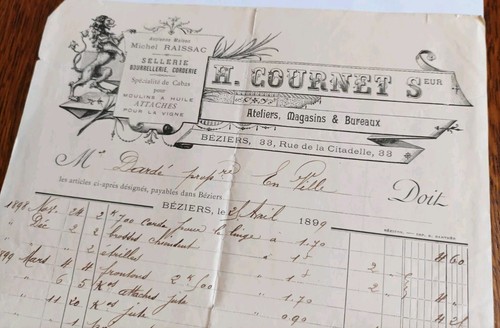 Ancienne Maison
Michel RAISSAC
SELLERIE
BOURRELLERIE, CORDERIE
Spécialité de Cabas
pour
MOULINS A HUILE
ATTACHES
POUR LA VIGNE
H. COURNET SEUR
Ateliers, Magasins & Bureaux
BÉZIERS, 33, Rue de la Citadelle, 33
Mr Dardé propre En Ville
Doit
les articles ci-après désignés, payables dans Béziers.
BÉZIERS, le 25 Avril 1899
1898 Nov. 24 2 k700 corde pour le linge à 1.70 4 60
" Dec 2 2 brosses chiendent à 1f 2
" " " 2 étrilles à 1f 2
1899 Mars 4 4 frontons
" " 6 5 Kos attaches jute à 1.70
" " 11 20 Kos Jute 0.90